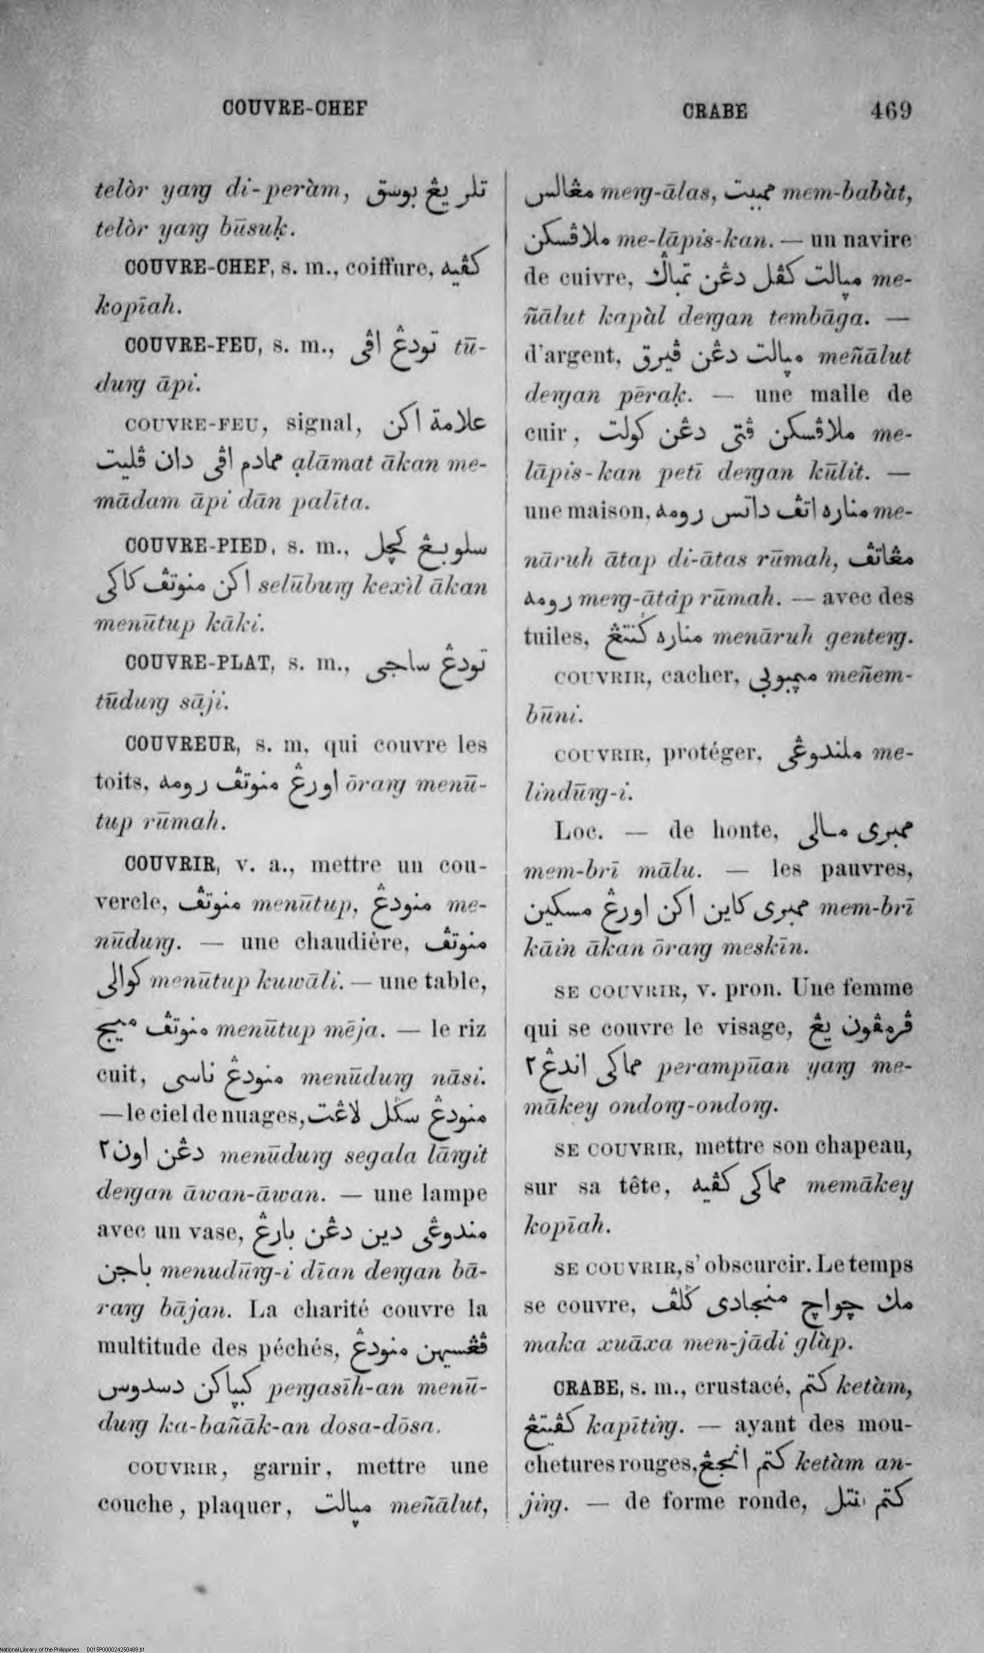 COUVRE-CHEF CRABE 469
telòr yaṛg di-peràm, تلر يڠ بوسق
telòr yaṛg būsuḳ.
COUVRE-CHEF, s. m., coiffure, كڤيه
kopīah.
COUVRE-FEU, s. m., تودڠ اڤى tū-
duṛg āpi.
COUVRE-FEU, signal, علامة اكن
ممادم اڤى دان ڤليت ạlāmat ākan me-
mādam āpi dān palīta.
COUVRE-PIED, s. m., سلوبڠ كچل
اكن منوتڤ كاكى selūbuṛg kexìl ākan
menūtup kāki.
COUVRE-PLAT, s. m., تودڠ ساجى
tūduṛg sāji.
COUVREUR, s. m, qui couvre les
toits, اورڠ منوتڤ رومه ōraṛg menū-
tup rūmah.
COUVRIR, v. a., mettre un cou-
vercle, منوتڤ menūtup, منودڠ me-
nūduṛg. — une chaudière, منوتڤ
كوالى menūtup kuwāli. — une table,
منوتڤ ميج menūtup mēja. — le riz
cuit, منودڠ ناسى menūduṛg nāsi.
— le ciel de nuages, منودڠ سڬل لاڠت
دڠن اون٢ menūduṛg segala lāṛgit
deṛgan āwan-āwan. — une lampe
avec un vase, مندوڠى دين دڠن بارڠ
باجن menudūṛg-i dīan deṛgan bā-
raṛg bājan. La charité couvre la
multitude des péchés, ڤڠسيهن منودڠ
كبڽاكن دسدوس peṛgasīh-an menū-
duṛg ka-bañāk-an dosa-dōsa.
COUVRIR, garnir, mettre une
couche, plaquer, مڽالت meñālut,
مڠالس meṛg-ālas, ممببت mem-babàt,
ملاڤسكن me-lāpis-kan. — un navire
de cuivre, مڽالت كڤل دڠن تمباݢ me-
ñālut kapàl deṛgan tembāga. —
d'argent, مڽالت دڠن ڤيرق meñālut
deṛgan pēraḳ. — une malle de
cuir, ملاڤسكن ڤتى دڠن كولت me-
lāpis-kan petī deṛgan kūlit. —
une maison, مناره اتڤ داتس رومه me-
nāruh ātap di-ātas rūmah, مڠاتڤ
رومه meṛg-ātáp rūmah. — avec des
tuiles, مناره ڬنتڠ menāruh genteṛg.
COUVRIR, cacher, مڽمبوني meñem-
būni.
COUVRIR, protéger, ملندوڠى me-
lindūṛg-i.
Loc. — de honte, ممبرى مالى
mem-brī mālu. — les pauvres,
ممبرى كاين اكن اورڠ مسكين mem-brī
kāin ākan ōraṛg meskīn.
SE COUVRIR, v. pron. Une femme
qui se couvre le visage, ڤرمڤون يڠ
مماكى اندڠ٢ perampūan yaṛg me-
mākey ondoṛg-ondoṛg.
SE COUVRIR, mettre son chapeau,
sur sa tête, مماكى كڤيه memākey
kopīah.
SE COUVRIR, s'obscurcir. Le temps
se couvre, مك چواچ منجادى ڬلڤ
maka xuāxa men-jādi glàp.
CRABE, s. m., crustacé, كتم ketàm,
كڤيتڠ kapītiṛg. — ayant des mou-
chetures rouges, كتم انجڠ ketàm an-
jiṛg. — de forme ronde, كتم